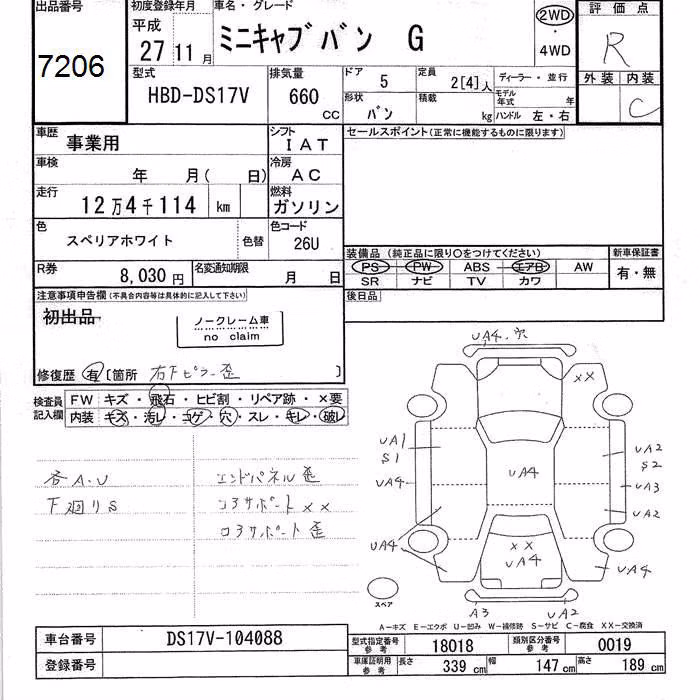 出品番号
7206
初度登録年月
平成
27 11 月
車名・グレード
ミニキャブバン G
2WD
・
4WD
評価点
R
外装 内装
C
型式
HBD-DS17V
排気量
660
CC
ドア 5
定員 2[4]人
ディーラー・並行
形状 バン
積載 kg
モデル年式 年
ハンドル 左・右
車歴
事業用
シフト
IAT
車検
年 月( 日)
冷房
AC
走行
12万4千114 km
燃料
ガソリン
色
スペリアホワイト
色替
色コード
26U
R券
8,030円
名変通知期限
月 日
セールスポイント(正常に機能するものに限ります)
装備品 (純正品に限り○をつけてください)
PS PW ABS エアB AW
SR ナビ TV カワ
新車保証書
有・無
後日品
注意事項申告欄(不具合内容等は具体的に記入して下さい)
初出品
ノークレーム車
no claim
修復歴 有 [箇所 右下ピラー歪 ]
検査員
記入欄
FW キズ・飛石・ヒビ割・リペア跡・×要
内装 キズ・汚レ・コゲ・穴・スレ・キレ・破レ
各A.U
下廻りS
エンドパネル歪
コアサポート××
コアサポート歪
UA4.穴
××
UA1
S1
UA4
UA4
UA4
UA2
S2
UA3
UA2
××
UA4
A3
UA2
スペア
A-キズ E-エクボ U-凹み W-補修跡 S-サビ C-腐食 XX-交換済
車台番号
DS17V-104088
登録番号
型式指定番号
参考
18018
類別区分番号
参考
0019
車庫証明用
参考
長さ 339 cm
幅 147 cm
高さ 189 cm